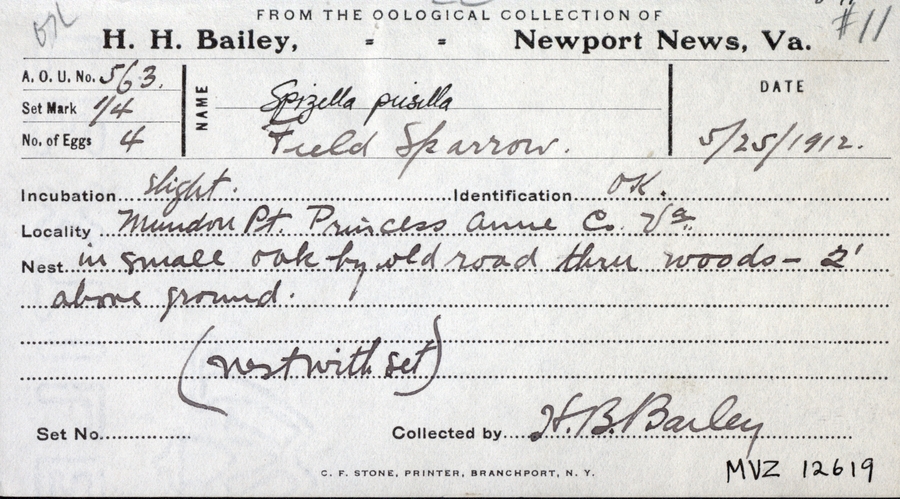 FROM THE OOLOGICAL COLLECTION OF
#11
H. H. Bailey, = = Newport News, Va.
A. O. U. No. 563.
Set Mark 1/4
No. of Eggs 4
NAME
Spizella pusilla
Field Sparrow.
DATE
5/25/1912.
Incubation slight. Identification OK.
Locality Mundon Pt. Princess Anne Co. Va.
Nest in small oak by old road thru woods – 2'
above ground.
(nest with set)
Set No. Collected by H. B. Bailey
C. F. STONE, PRINTER, BRANCHPORT, N. Y.
MVZ 12619